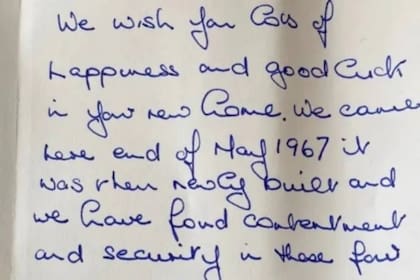 We wish you lots of
happiness and good luck
in your new home. We came
here end of May 1967 it
was then newly built and
we have fond contentment
and security in these four